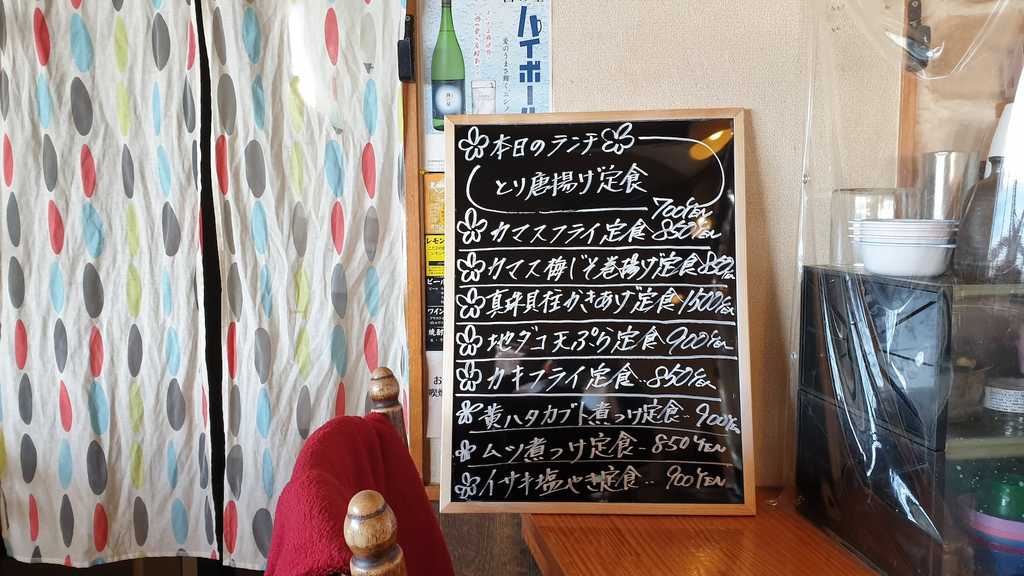 ハイボール
本日のランチ
とり唐揚げ定食
700YEN
カマスフライ定食 850YEN
カマス梅じそ巻揚げ定食 850YEN
真珠貝柱かきあげ定食 1500YEN
地ダコ天ぷら定食 900YEN
カキフライ定食‥850YEN
黄ハタカブト煮つけ定食‥900YEN
ムツ煮つけ定食‥850YEN
イサキ塩やき定食‥900YEN